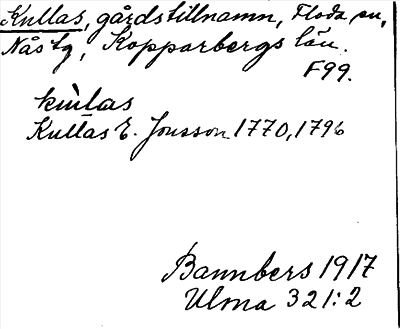 Kullas, gårdstillnamn, Floda sn,
Nås tg, Kopparbergs län.
F99.
kùlas
Kullas E. Jonsson 1770, 1796
Bannbers 1917
Ulma 321:2